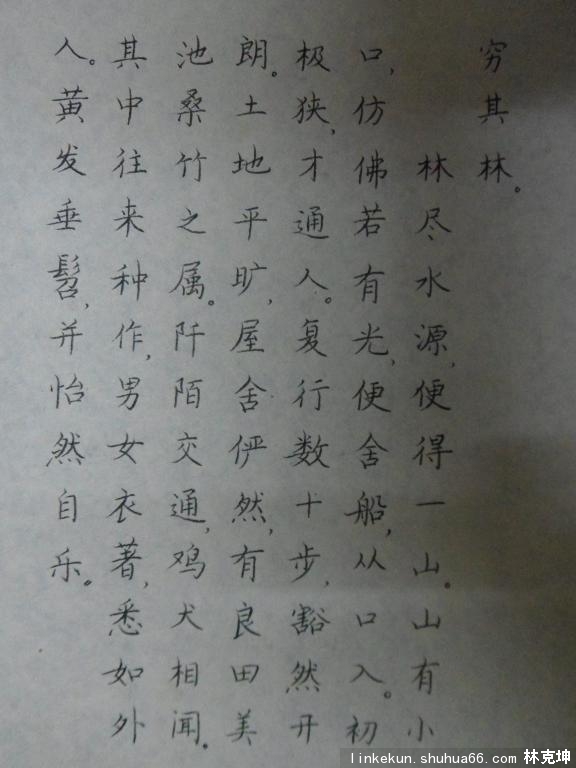 穷其林。
林尽水源，便得一山。山有小
口，仿佛若有光，便舍船，从口入。初
极狭，才通人。复行数十步，豁然开
朗。土地平旷，屋舍俨然，有良田美
池桑竹之属。阡陌交通，鸡犬相闻。
其中往来种作，男女衣著，悉如外
人。黄发垂髫，并怡然自乐。
linekun.shuhua66.com 林克坤